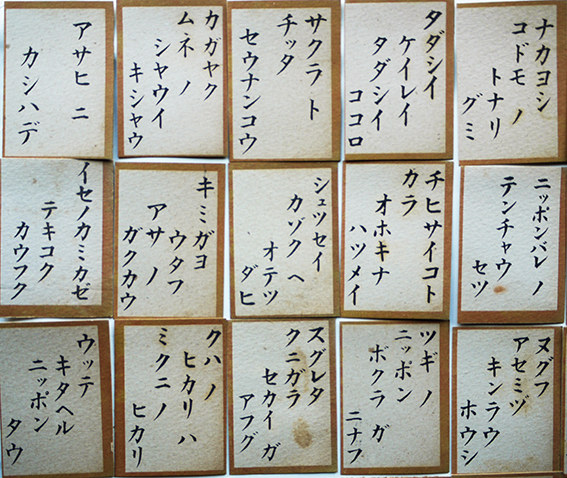 ナカヨシ
コドモ ノ
トナリ
グミ
タダシイ
ケイレイ
タダシイ
ココロ
サクラ ト
チッタ
セウナンコウ
カガヤク
ムネ ノ
シャウイ
キシャウ
アサヒ ニ
カシハデ
ニッポンバレ ノ
テンチャウ
セツ
チヒサイコト
カラ
オホキナ
ハツメイ
シュツセイ
カゾク ヘ
オテツ
ダヒ
キミガヨ
ウタフ
アサ ノ
ガクカウ
イセノカミカゼ
テキコク
カウフク
ヌグフ
アセミヅ
キンラウ
ホウシ
ツギ ノ
ニッポン
ボクラ ガ
ニナフ
スグレタ
クニガラ
セカイ ガ
アフグ
クハ ノ
ヒカリ ハ
ミクニ ノ
ヒカリ
ウッテ
キタヘル
ニッポン
タウ